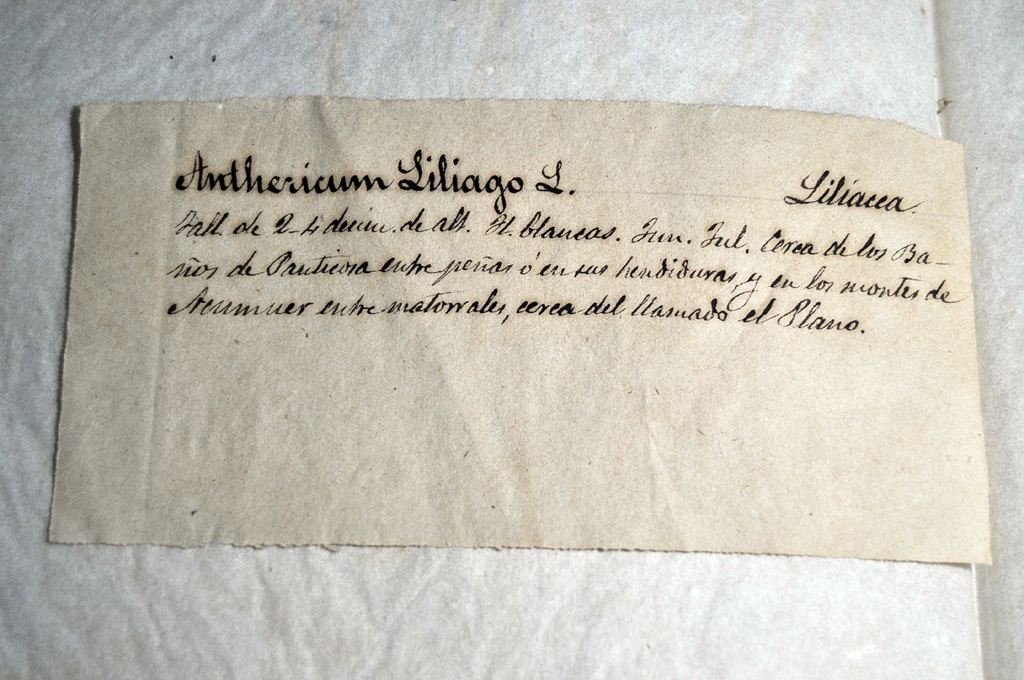 Anthericum Liliago L. Liliacea.
Tall. de 2-4 decím. de alt. Fl. blancas. Jun. Jul. Cerca de los Ba-
ños de Panticosa entre peñas ó en sus hendiduras, y en los montes de
Acumuer entre matorrales, cerca del llamado el Plano.